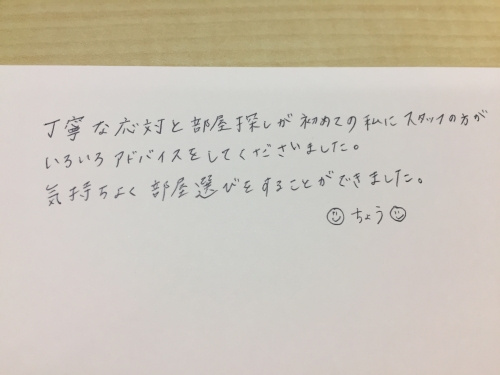 丁寧な応対と部屋探しが初めての私にスタッフの方が
いろいろアドバイスをしてくださいました。
気持ちよく部屋選びをすることができました。
☺ちょう☺